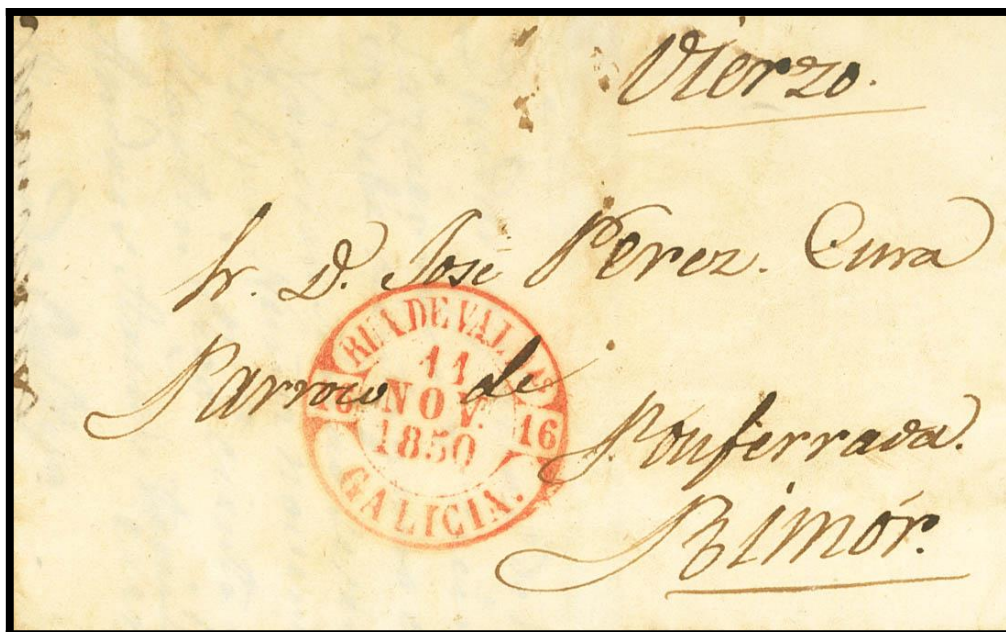 Vierzo.
Sr. D. José Perez. Cura
Parroco de
Ponferrada.
Rimór.
RUA DE VAL
11
NOV.
1850
16 16
GALICIA.